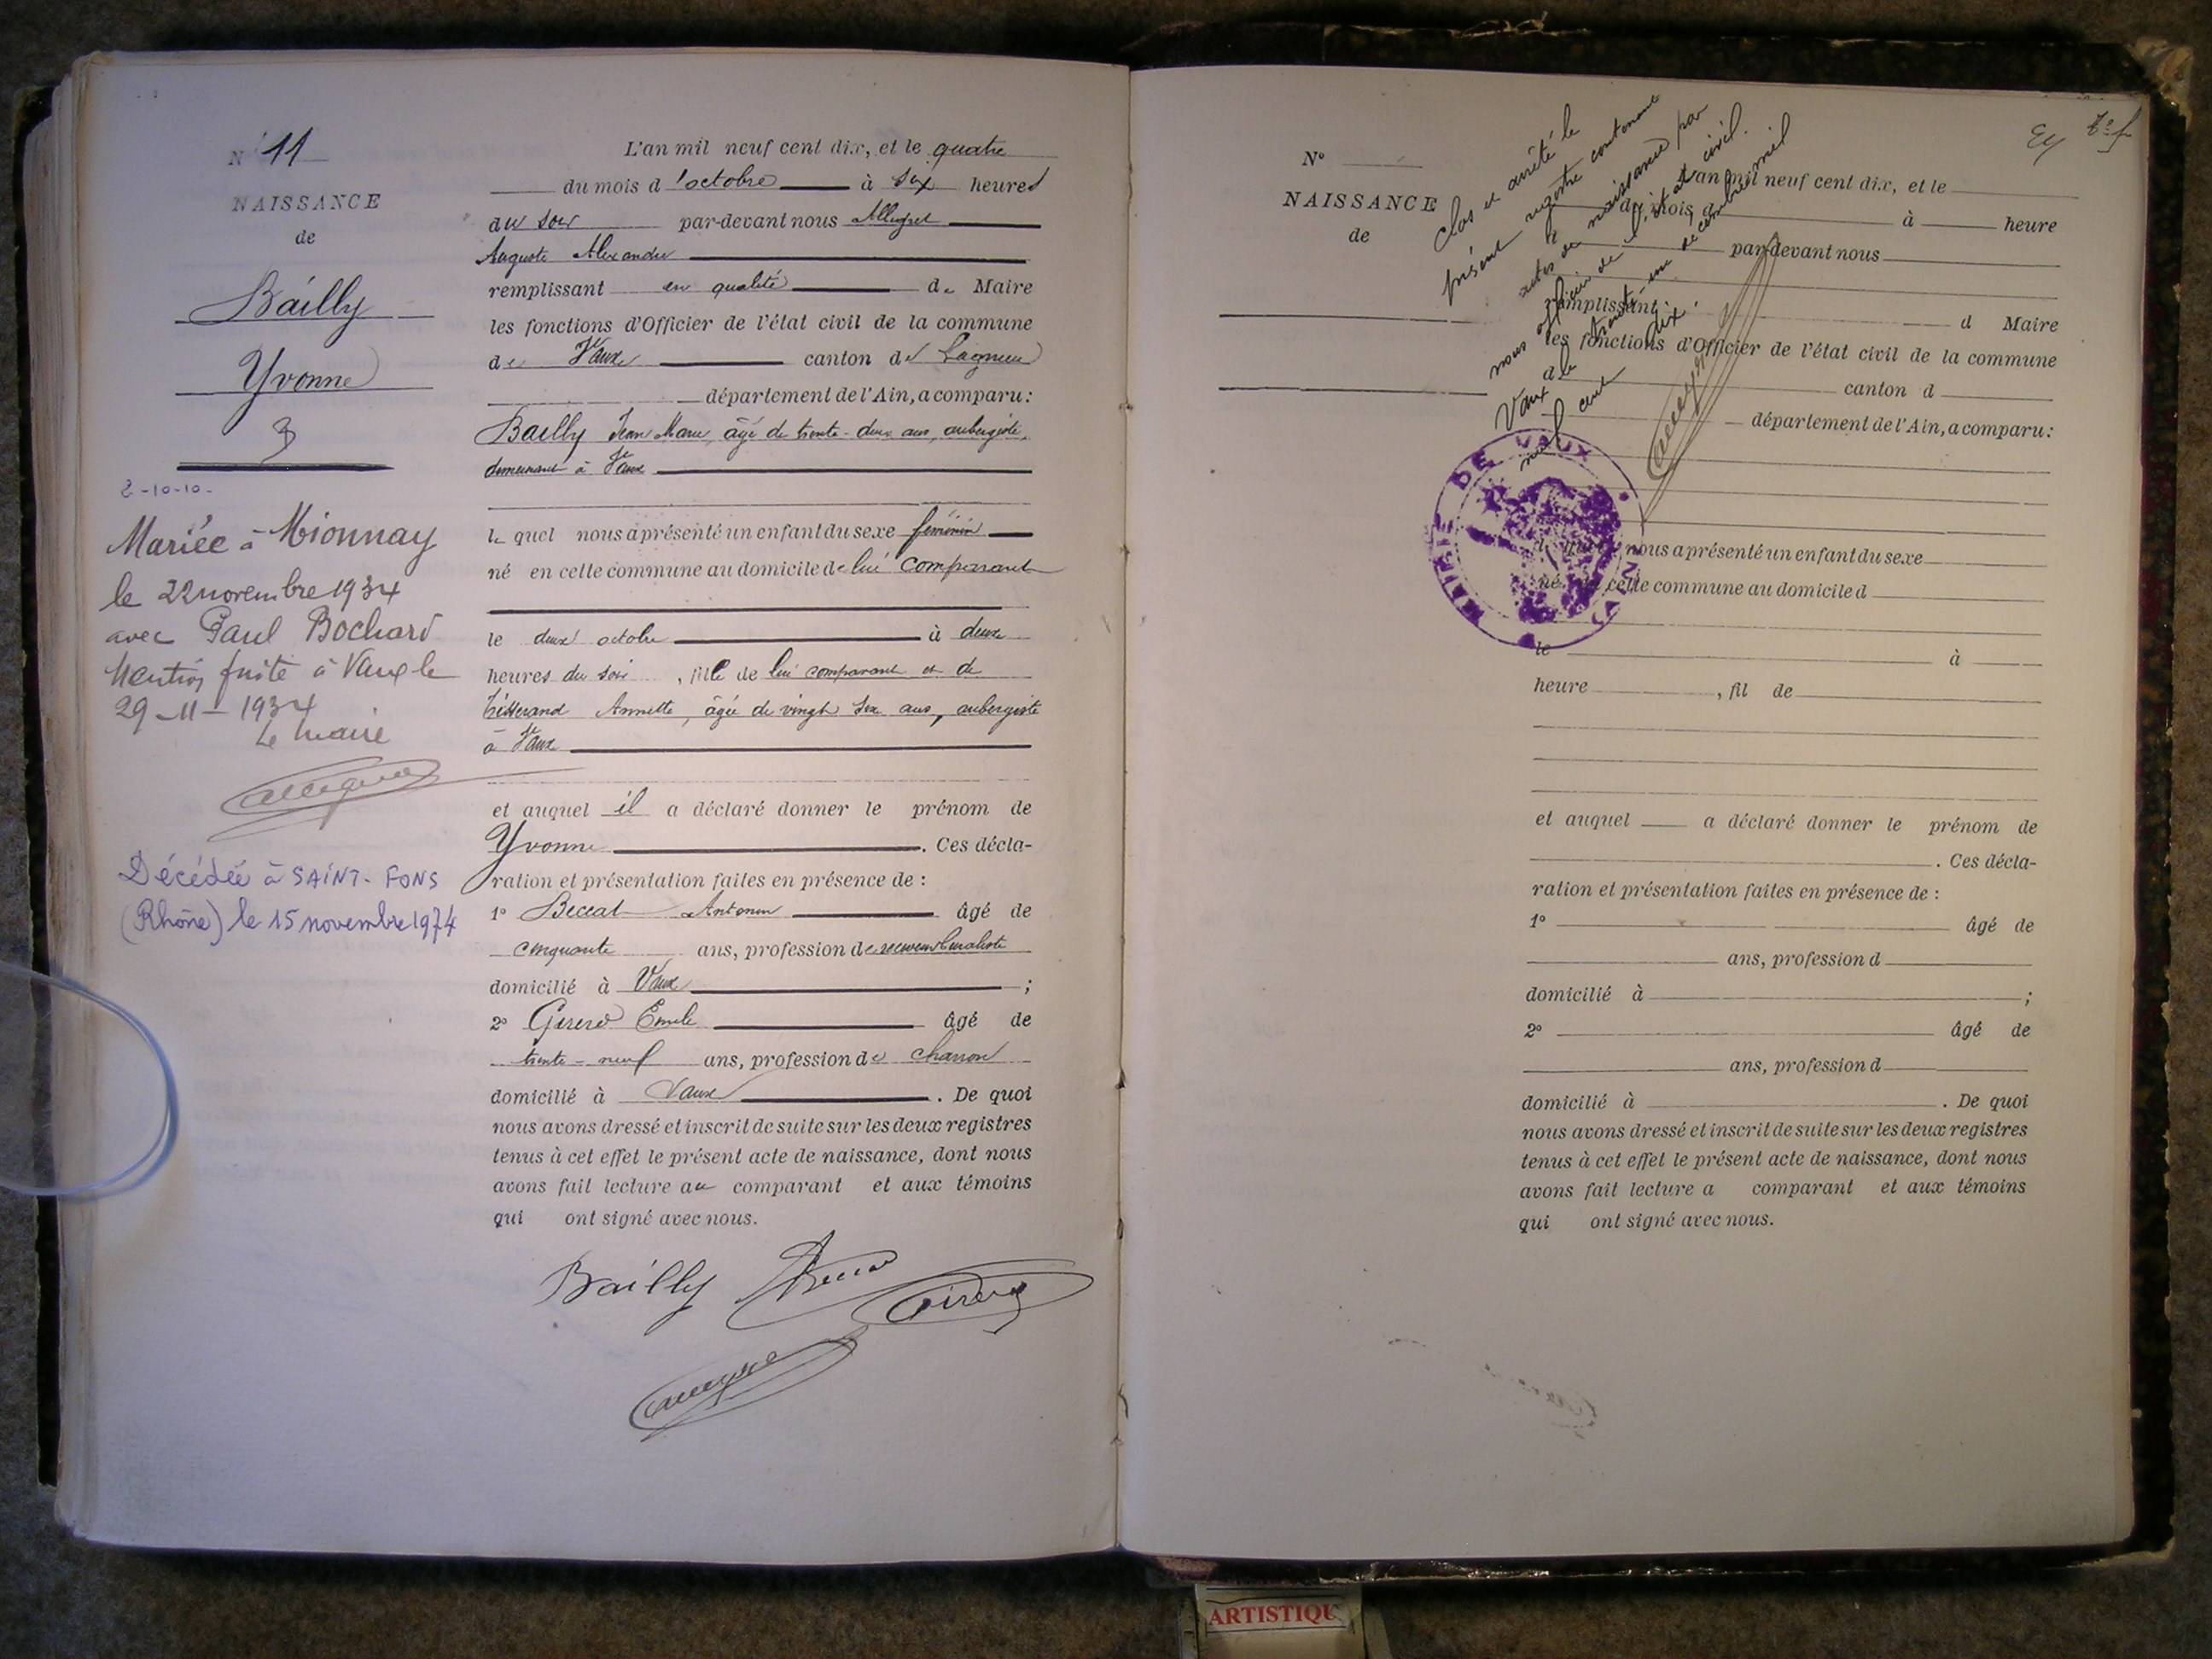 N° 11
NAISSANCE
de
Bailly
Yvonne
3
2-10-10-
Mariée à Mionnay
le 22 novembre 1934
avec Paul Bochard
Mention faite à Vaux le
29-11-1934
Le Maire
Décédée à SAINT-FONS
(Rhône) le 15 novembre 1974
L'an mil neuf cent dix, et le quatre
du mois d'octobre à six heures
du soir par-devant nous
Auguste Alexandre
remplissant en qualité de Maire
les fonctions d'Officier de l'état civil de la commune
de Vaux canton de Lagnieu
département de l'Ain, a comparu :
Bailly Jean Marie, âgé de trente-deux ans, aubergiste,
demeurant à Vaux
le quel nous a présenté un enfant du sexe féminin
né en cette commune au domicile de lui comparant
le deux octobre à deux
heures du soir, fille de lui comparant et de
Annette, âgée de vingt six ans, aubergiste
à Vaux
et auquel il a déclaré donner le prénom de
Yvonne. Ces décla-
ration et présentation faites en présence de :
1° Beccat Antonin âgé de
cinquante ans, profession de receveur buraliste
domicilié à Vaux ;
2° Emile âgé de
trente-neuf ans, profession de charron
domicilié à Vaux. De quoi
nous avons dressé et inscrit de suite sur les deux registres
tenus à cet effet le présent acte de naissance, dont nous
avons fait lecture au comparant et aux témoins
qui ont signé avec nous.
Bailly
N°
NAISSANCE
de
Clos et arrêté le
présent registre contenant
actes de naissance par
nous officier de l'état civil.
Vaux le trente un décembre mil
neuf cent dix.
L'an mil neuf cent dix, et le
du mois d à heure
par-devant nous
remplissant d Maire
les fonctions d'Officier de l'état civil de la commune
d canton d
département de l'Ain, a comparu :
MAIRIE DE VAUX
AIN
l quel nous a présenté un enfant du sexe
né en cette commune au domicile d
le à
heure , fil de
et auquel a déclaré donner le prénom de
. Ces décla-
ration et présentation faites en présence de :
1° âgé de
ans, profession d
domicilié à ;
2° âgé de
ans, profession d
domicilié à . De quoi
nous avons dressé et inscrit de suite sur les deux registres
tenus à cet effet le présent acte de naissance, dont nous
avons fait lecture a comparant et aux témoins
qui ont signé avec nous.
ARTISTIQU